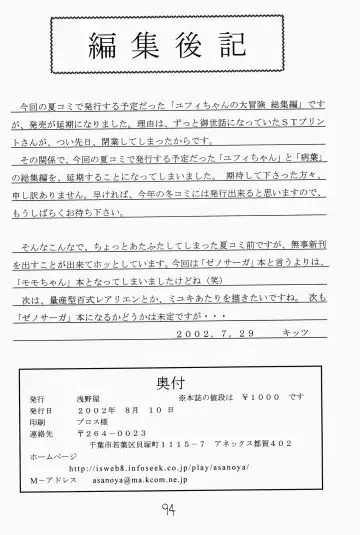 編集後記
今回の夏コミで発行する予定だった「エフィちゃんの大冒険 総集編」です
が、発売が延期になりました。理由は、ずっと御世話になっていたＳＴプリン
トさんが、つい先日、閉業してしまったからです。
その関係で、今回の夏コミで発行する予定だった「エフィちゃん」と「病葉」
の総集編を、延期することになってしまいました。 期待して下さった方々、
申し訳ありません。早ければ、今年の冬コミには発行出来ると思いますので、
もうしばらくお待ち下さい。
そんなこんなで、ちょっとあたふたしてしまった夏コミ前ですが、無事新刊
を出すことが出来てホッとしています。今回は「ゼノサーガ」本と言うよりは、
「モモちゃん」本となってしまいましたけどね（笑）
次は、量産型百式レアリエンとか、ミユキあたりを描きたいですね。 次も
「ゼノサーガ」本になるかどうかは未定ですが・・・
２００２．７．２９ キッツ
奥付
発行 浅野屋 ※本誌の値段は ￥１０００ です
発行日 ２００２年 ８月 １０日
印刷 プロス様
連絡先 〒２６４－００２３
千葉市若葉区貝塚町１１１５－７ アネックス都賀４０２
ホームページ
http://isweb8.infoseek.co.jp/play/asanoya/
Ｍ－アドレス asanoya@ma.kcom.ne.jp
94